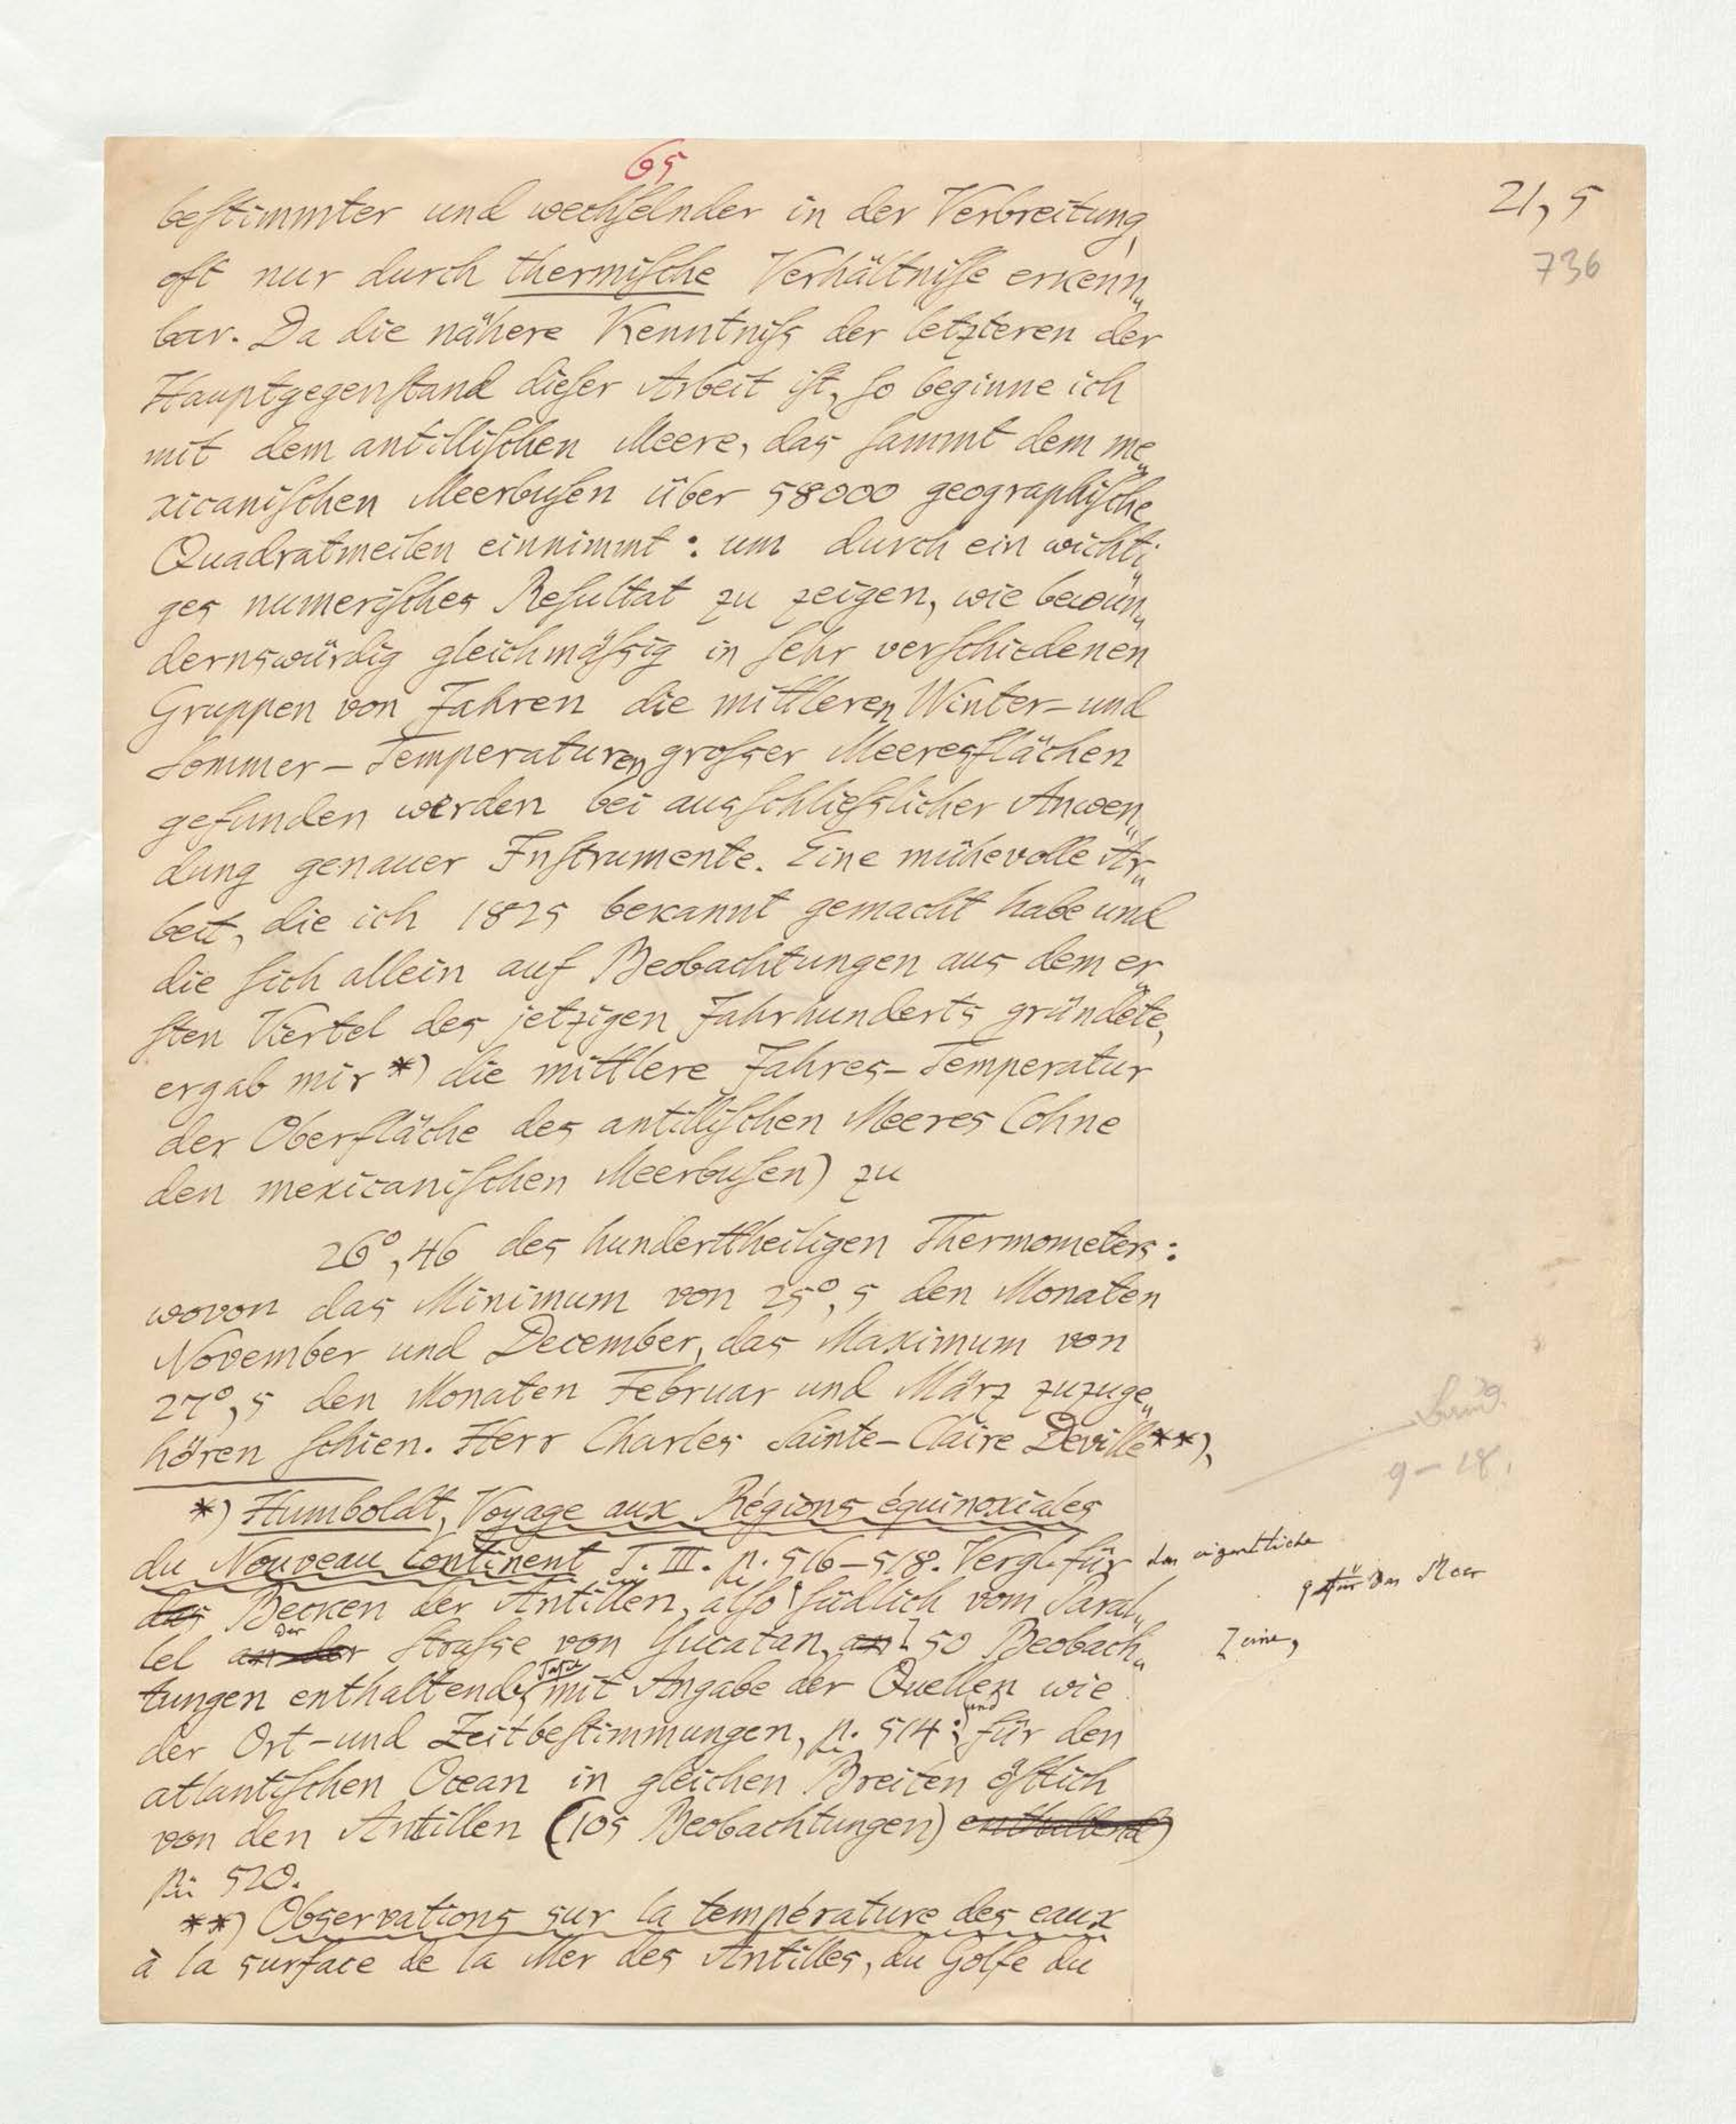 65
21, 5
736
beſtimmter und wechſelnder in der Verbreitung,
oft nur durch thermiſche Verhältniſſe erkenn„
bar. Da die nähere Kenntniſs der letzteren der
Hauptgegenſtand dieſer Arbeit iſt, ſo beginne ich
mit dem antilliſchen Meere, das ſammt dem me„
xicaniſchen Meerbuſen über 58000 geographiſche
Quadratmeilen einnimmt: um durch ein wichti„
ges numeriſches Reſultat zu zeigen, wie bewun„
dernswürdig gleichmäſsig in ſehr verſchiedenen
Gruppen von Jahren die mittleren Winter- und
Sommer-Temperaturen groſser Meeresflächen
gefunden werden bei ausſchlieſslicher Anwen„
dung genauer Inſtrumente. Eine mühevolle Ar„
beit, die ich 1825 bekannt gemacht habe und
die ſich allein auf Beobachtungen aus dem er„
ſten Viertel des jetzigen Jahrhunderts gründete,
ergab mir *) die mittlere Jahres-Temperatur
der Oberfläche des antilliſchen Meeres (ohne
den mexicaniſchen Meerbuſen) zu
26°,46 des hunderttheiligen Thermometers:
wovon das Minimum von 25°,5 den Monaten
November und December, das Maximum von
27°,5 den Monaten Februar und März zuzuge„
hören ſchien. Herr Charles Sainte-Claire Deville **),
9-18.
*) Humboldt, Voyage aux Régions équinoxiales
du Nouveau Continent T. III. p. 516-518. Vergl. für das eigentliche
für das Meer
das Becken der Antillen, alſo ſüdlich vom Paral„
lel an der der Straſse von Yucatan, 50 Beobach„
eine,
tungen enthaltende, mit Angabe der Quellen wie
der Ort- und Zeitbeſtimmungen, p. 514; und für den
atlantiſchen Ocean in gleichen Breiten öſtlich
von den Antillen (105 Beobachtungen) enthaltend)
p. 520.
**) Observations sur la température des eaux
à la surface de la Mer des Antilles, du Golfe du